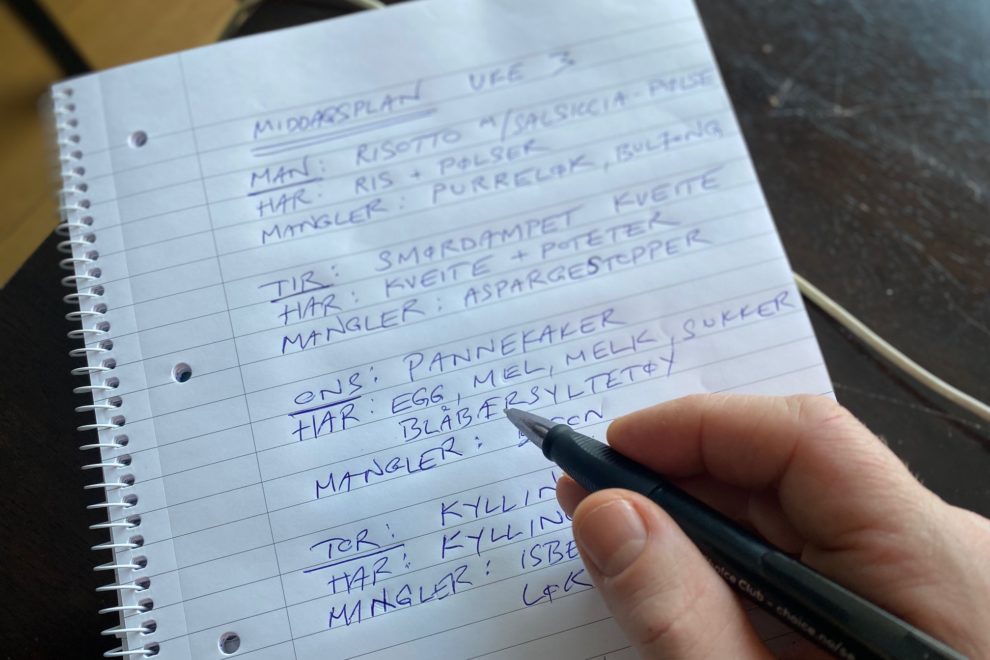 MIDDAGSPLAN UKE 3
MAN: RISOTTO M/SALSICCIA-PØLSE
HAR: RIS + PØLSER
MANGLER: PURRELØK, BULJONG
TIR: SMØRDAMPET KVEITE
HAR: KVEITE + POTETER
MANGLER: ASPARGESTOPPER
ONS: PANNEKAKER
HAR: EGG, MEL, MELK, SUKKER
BLÅBÆRSYLTETØY
MANGLER:
TOR:
HAR:
MANGLER:
LØK
choice Club - choice.no/se